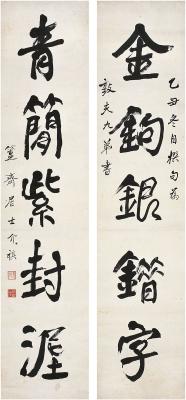 金鉤銀鐕字
乙丑冬自撰句為
敦夫九弟書
青簡紫封泥
簠齋居士介祺